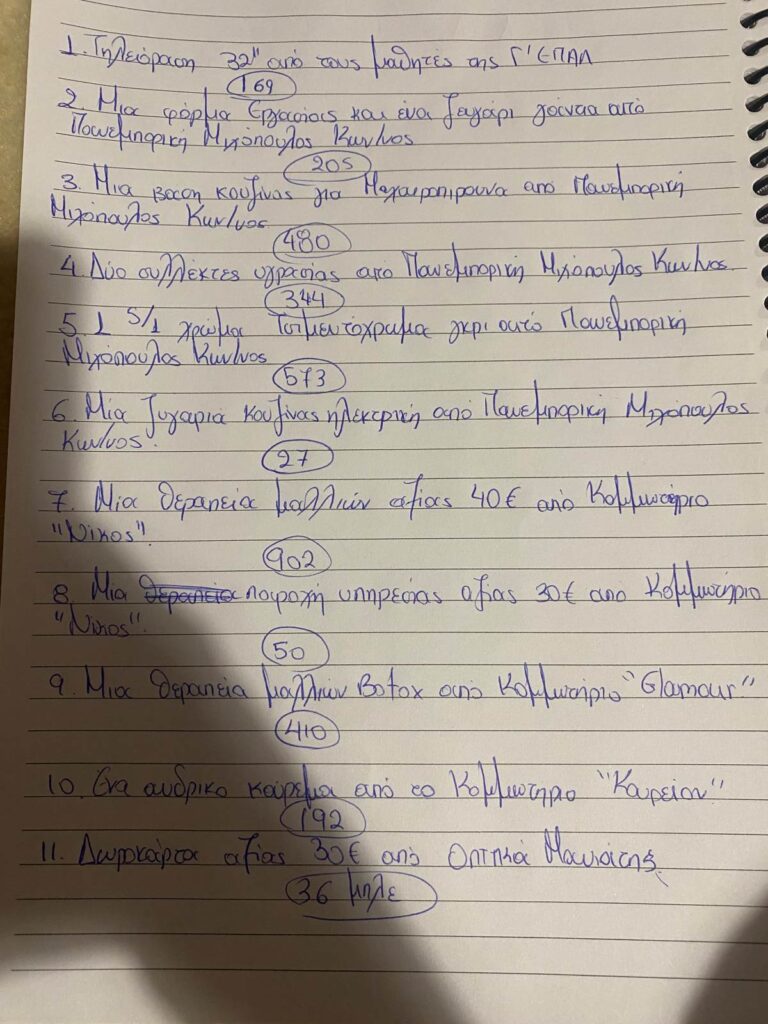 1. Τηλεόραση 32" από τους μαθητές της Γ' ΕΠΑΛ
169
2. Μια φόρμα Εργασίας και ένα ζευγάρι γάντια από
Πανεμπορική Μιχόπουλος Κων/νος
205
3. Μια βάση κουζίνας για Μαχαιροπίρουνα από Πανεμπορική
Μιχόπουλος Κων/νος
480
4. Δύο συλλέκτες υγρασίας από Πανεμπορική Μιχόπουλος Κων/νος.
344
5. 1 5/1 χρώμα Τσιμεντόχρωμα γκρι από Πανεμπορική
Μιχόπουλος Κων/νος
573
6. Μία ζυγαριά κουζίνας ηλεκτρική από Πανεμπορική Μιχόπουλος
Κων/νος.
27
7. Μια θεραπεία μαλλιών αξίας 40€ από Κομμωτήριο
"Νίκος".
902
8. Μια θεραπεία παροχή υπηρεσίας αξίας 30€ από Κομμωτήριο
"Νίκος".
50
9. Μια θεραπεία μαλλιών Botox από Κομμωτήριο "Glamour"
410
10. Ένα ανδρικό κούρεμα από το Κομμωτήριο "Κουρείον"
192
11. Δωροκάρτα αξίας 30€ από Οπτικά
36 μπλε